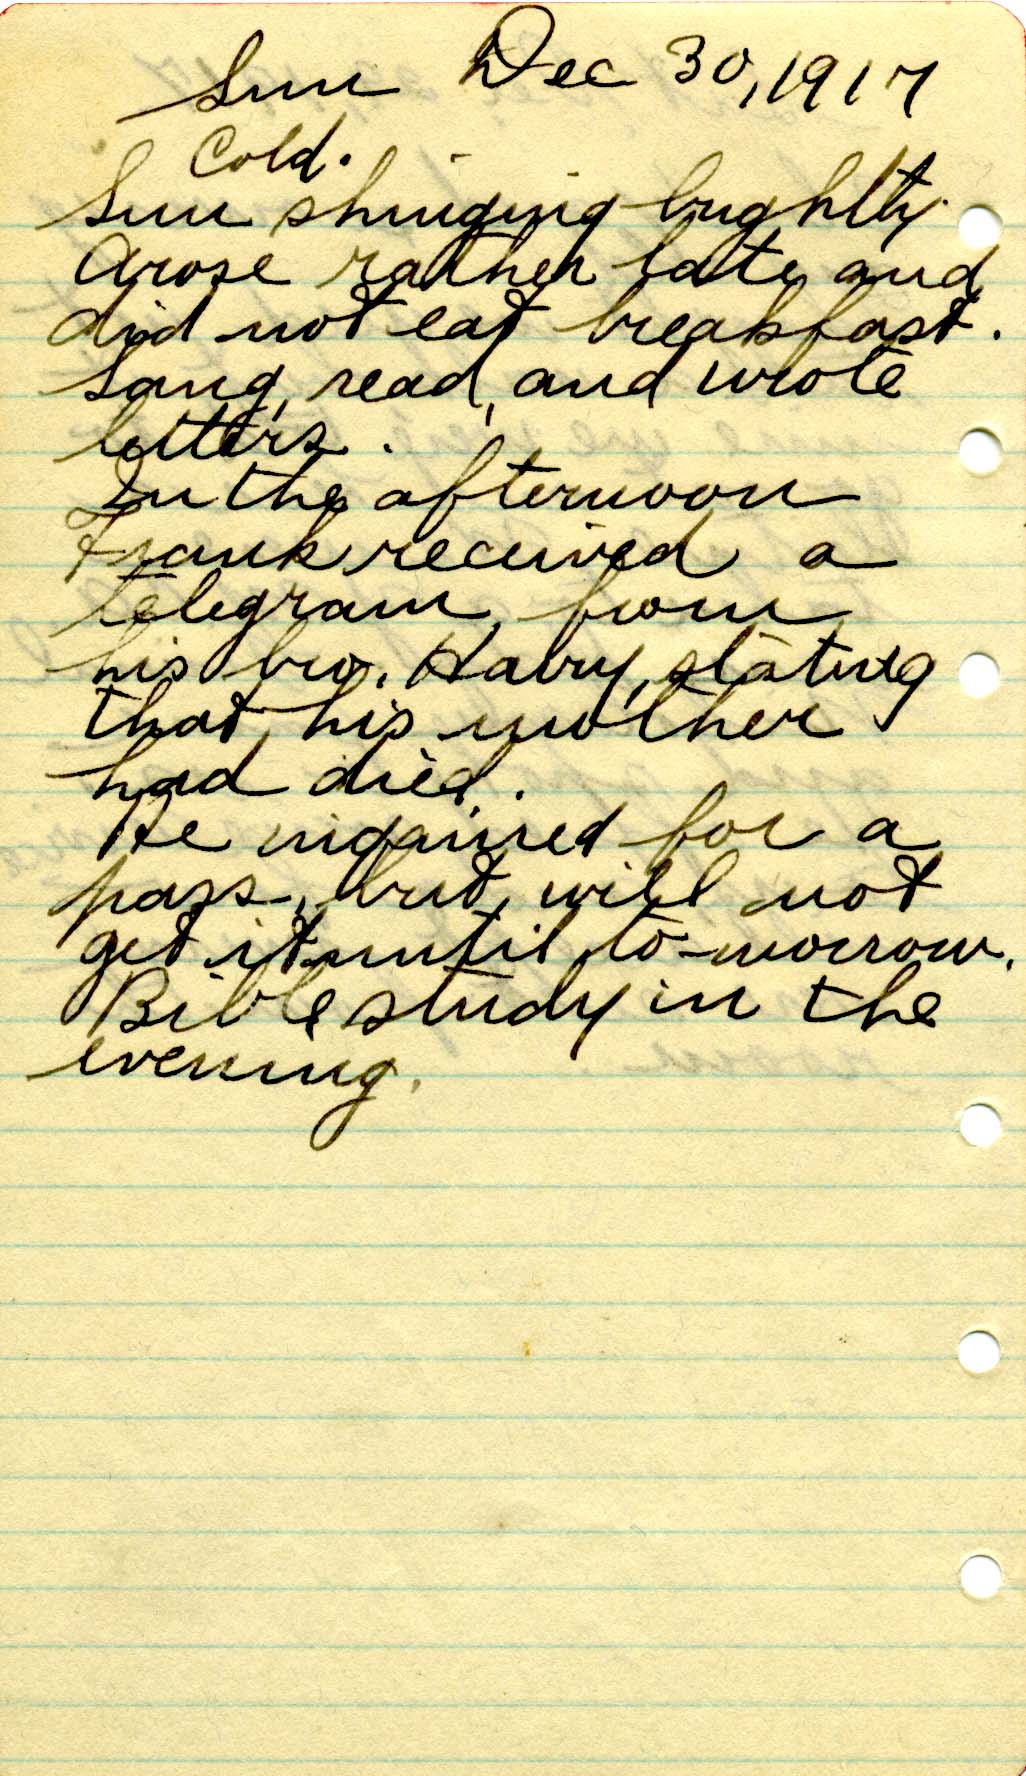 Sun Dec 30, 1917
Cold.
Sun shinging brightly.
Arose rather late and
did not eat breakfast.
Sang, read, and wrote
letters.
In the afternoon
Frank received a
telegram from
his bro. Harry, stating
that his mother
had died.
He inquired for a
pass, but will not
get it until to-morrow.
Bible study in the
evening.